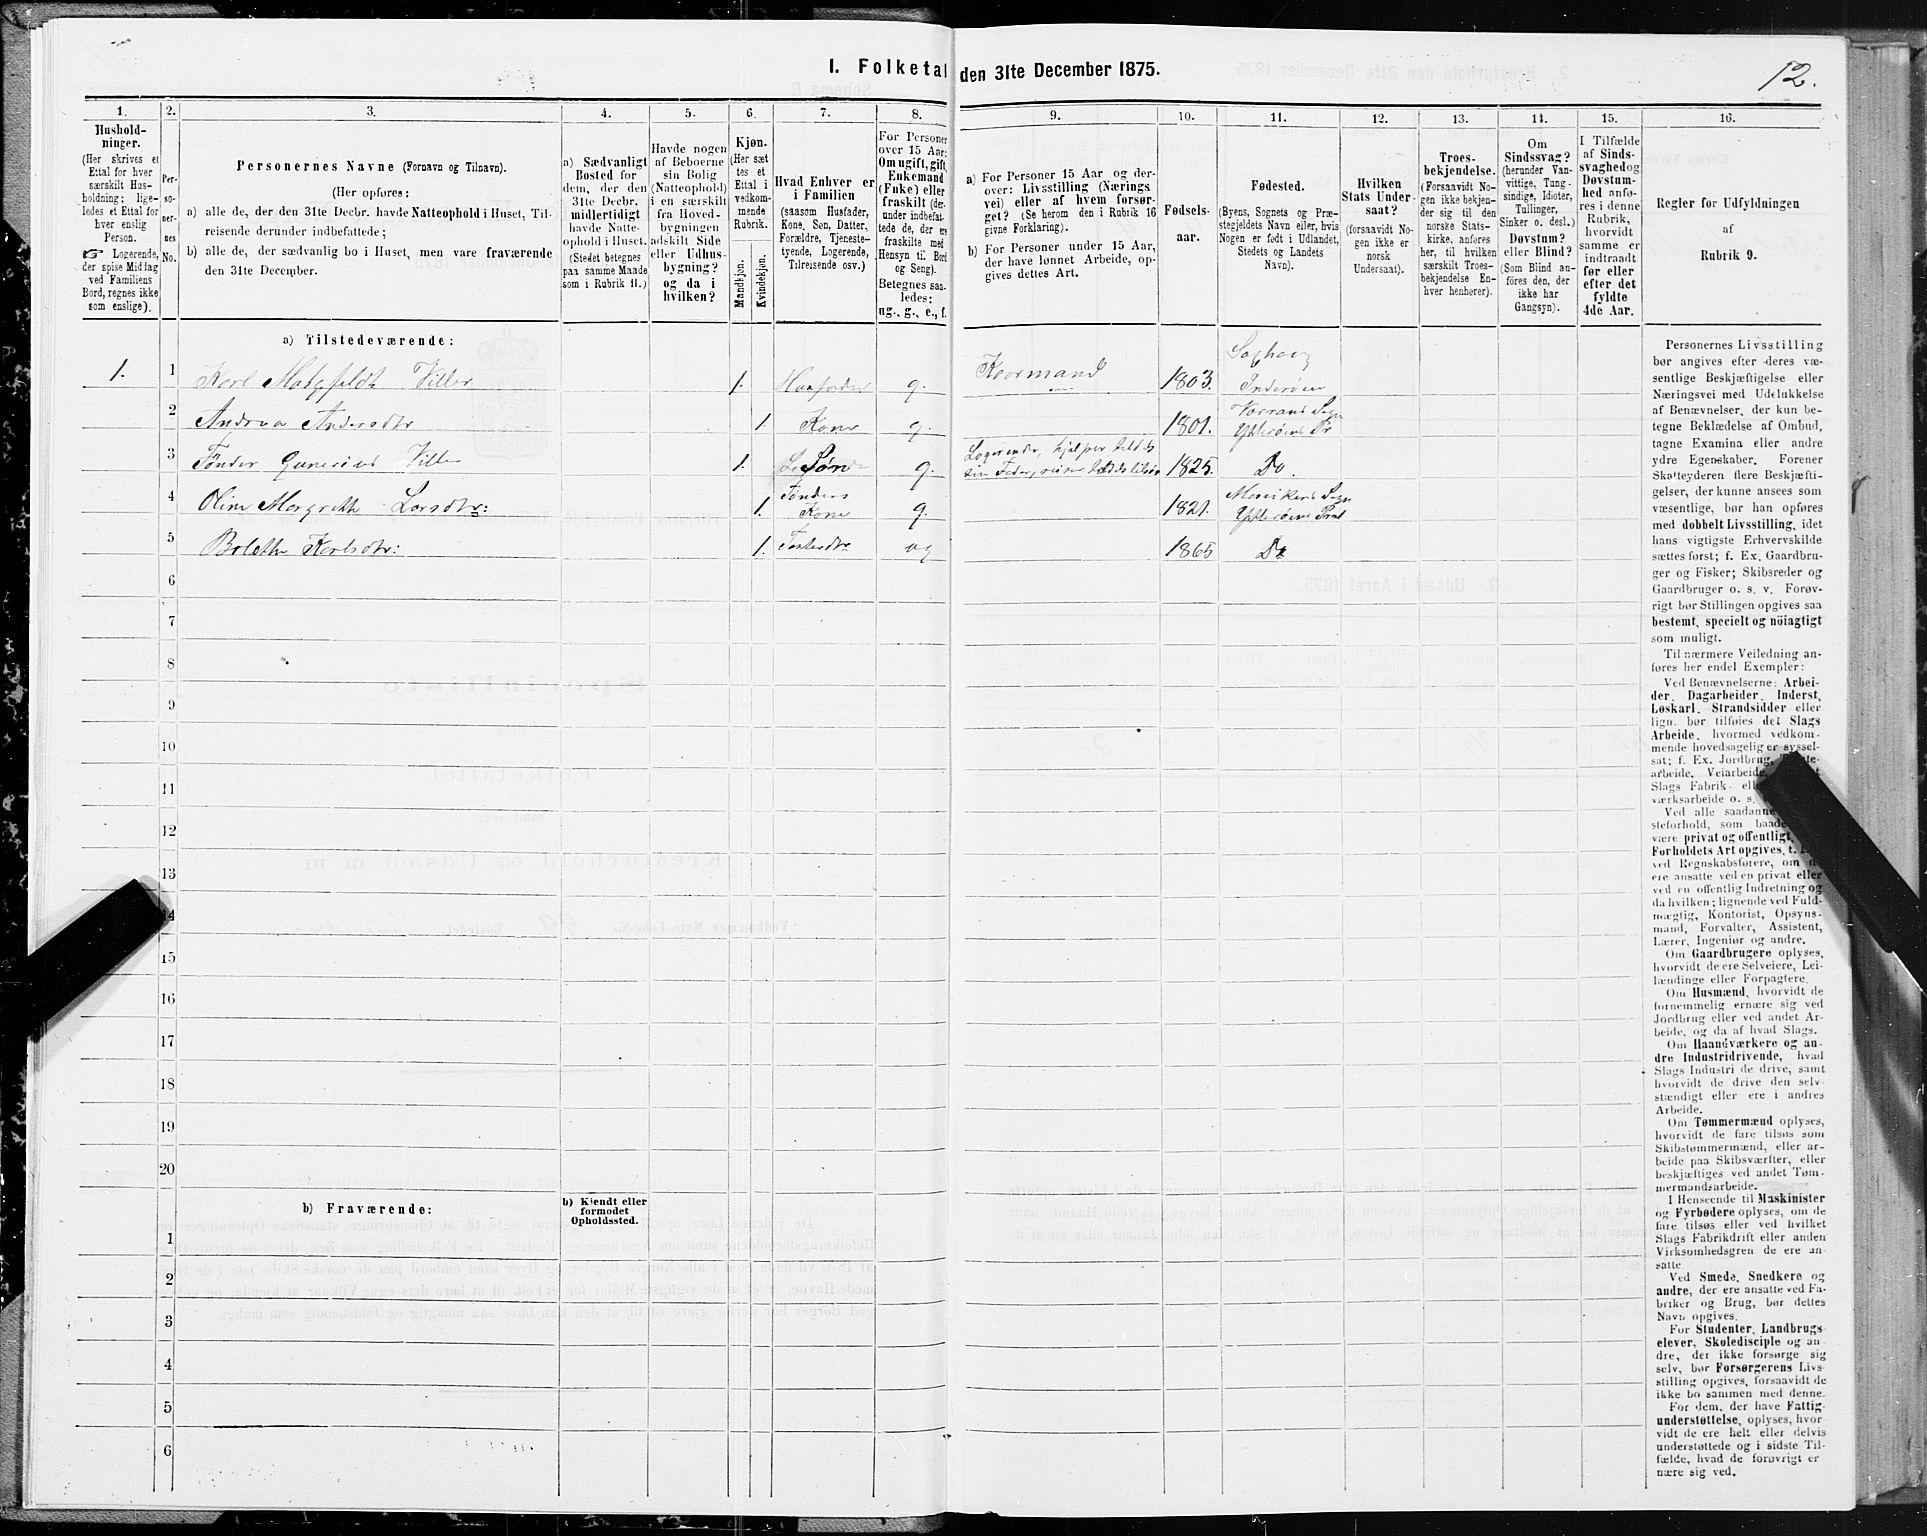 12.
I. Folketal den 31te December 1875.
1.
Hushold-
ninger.
(Her skrives et
Ettal for hver
særskilt Hus-
holdning; lige-
ledes et Ettal for
hver enslig
Person.
☞ Logerende,
der spise Middag
ved Familiens
Bord, regnes ikke
som enslige).
2.
Per-
so-
ner-
nes
No.
3.
Personernes Navne (Fornavn og Tilnavn).
(Her opføres:
a) alle de, der den 31te Decbr. havde Natteophold i Huset, Til-
reisende derunder indbefattede;
b) alle de, der sædvanlig bo i Huset, men vare fraværende
den 31te December.
4.
a) Sædvanligt
Bosted for
dem, der den
31te Decbr.
midlertidigt
havde Natte-
ophold i Huset.
(Stedet betegnes
paa samme Maade
som i Rubrik 11.)
5.
Havde nogen
af Beboerne
sin Bolig
(Natteophold)
i en særskilt
fra Hoved-
bygningen
adskilt Side
eller Udhus-
bygning?
og da i
hvilken?
6.
Kjøn.
(Her sæt
tes et
Ettal i
vedkom-
mende
Rubrik.
Mandkjøn.
Kvindekjøn.
7.
Hvad Enhver er
i Familien
(saasom Husfader,
Kone, Søn, Datter,
Forældre, Tjeneste-
tyende, Logerende,
Tilreisende osv.)
8.
For Personer
over 15 Aar:
Om ugift, gift,
Enkemand
(Enke) eller
fraskilt (der-
under indbefat-
tede de, der ere
fraskilte med
Hensyn til Bord
og Seng).
Betegnes saa-
ledes:
ug., g., e., f.
9.
a) For Personer 15 Aar og der-
over: Livsstilling (Nærings
vei) eller af hvem forsør-
get? (Se herom den i Rubrik 16
givne Forklaring).
b) For Personer under 15 Aar,
der have lønnet Arbeide, op-
gives dettes Art.
10.
Fødsels-
aar.
11.
Fødested.
(Byens, Sognets og Præ-
stegjeldets Navn eller, hvis
Nogen er født i Udlandet,
Stedets og Landets
Navn).
12.
Hvilken
Stats Under
saat?
(forsaavidt No-
gen ikke er
norsk
Undersaat).
13.
Troes-
bekjendelse.
(Forsaavidt No-
gen ikke bekjen-
der sig til den
norske Stats-
kirke, anføres
her, til hvilken
særskilt Troes-
bekjendelse En-
hver henhører).
14.
Om
Sindssvag?
(herunder Van-
vittige, Tung-
sindige, Idioter,
Tullinger,
Sinker o. desl.)
Døvstum?
eller Blind?
(Som Blind an-
føres den, der
ikke har
Gangsyn).
15.
I Tilfælde
af Sinds-
svaghed og
Døvstum-
hed anfø-
res i denne
Rubrik,
hvorvidt
samme er
indtraadt
før eller
efter det
fyldte
4de Aar.
16.
Regler for Udfyldningen
af
Rubrik 9.
a) Tilstedeværende:
1. 1 Karl Viller 1. g. 1803. Inderøen
2 Andersdtr 1. Kone g. 1801.
3 Tønder Viller 1. Søn g. 1825. Do.
4 Larsdtr: 1. Tønders Kone g. 1821.
5 Karlsdtr: 1. ug 1865 Do
6
7
8
9
10
11
12
13
14
15
16
17
18
19
20
b) Fraværende:
b) Kjendt eller
formodet
Opholdssted.
1
2
3
4
5
6
Personernes Livsstilling
bør angives efter deres væ-
sentlige Beskjæftigelse eller
Næringsvei med Udelukkelse
af Benævnelser, der kun be-
tegne Beklædelse af Ombud,
tagne Examina eller andre
ydre Egenskaber. Forener
Skatteyderen flere Beskjæfti-
gelser, der kunne ansees som
væsentlige, bør han opføres
med dobbelt Livsstilling, idet
hans vigtigste Erhvervskilde
sættes først; f. Ex. Gaardbru-
ger og Fisker; Skibsreder og
Gaardbruger o. s. v. Forøv-
rigt bør Stillingen opgives saa
bestemt, specielt og nøiagtigt
som muligt.
Til nærmere Veiledning an-
føres her endel Exempler:
Ved Benævnelserne: Arbei-
der, Dagarbeider, Inderst,
Løskarl, Strandsidder eller
lign. bør tilføies det Slags
Arbeide, hvormed vedkom-
mende hovedsagelig er syssel-
sat; f. Ex. Jordbrug,
arbeide, Veiarbeide,
Slags Fabrik-
værksarbeide o. s.
Ved alle saadanne
steforhold, som
være privat og offentligt,
Forholdets Art opgives,
ved Regnskabsførere, om
ere ansatte ved en privat eller
ved en offentlig Indretning og
da hvilken; lignende ved Fuld-
mægtig, Kontorist, Opsyns-
mand, Forvalter, Assistent,
Lærer, Ingeniør og andre.
Om Gaardbrugere oplyses,
hvorvidt de ere Selveiere, Lei-
lændinge eller Forpagtere.
Om Husmænd, hvorvidt de
fornemmelig ernære sig ved
Jordbrug eller ved andet Ar-
beide, og da af hvad Slags.
Om Haandværkere og an-
dre Industridrivende, hvad
Slags Industri de drive, samt
hvorvidt de drive den selv-
stændigt eller ere i andres
Arbeide.
Om Tømmermænd oplyses,
hvorvidt de fare tilsøs som
Skibstømmermænd, eller ar-
beide paa Skibsværfter, eller
beskjæftiges ved andet Tøm-
mermandsarbeide.
I Henseende til Maskinister
og Fyrbødere oplyses, om de
fare tilsøs eller ved hvilket
Slags Fabrikdrift eller anden
Virksomhedsgren de ere an-
satte.
Ved Smede, Snedkere og
andre, der ere ansatte ved Fa-
briker og Brug, bør dettes
Navn opgives.
For Studenter, Landbrugs-
elever, Skoledisciple og an-
dre, der ikke forsørge sig
selv, bør Forsørgerens Livs-
stilling opgives, forsaavidt de
ikke bo sammen med denne.
For dem, der have Fattig-
understøttelse, oplyses, hvor-
vidt de ere helt eller delvis
understøttede og i sidste Til-
fælde, hvad de forøvrigt er
nære sig ved.